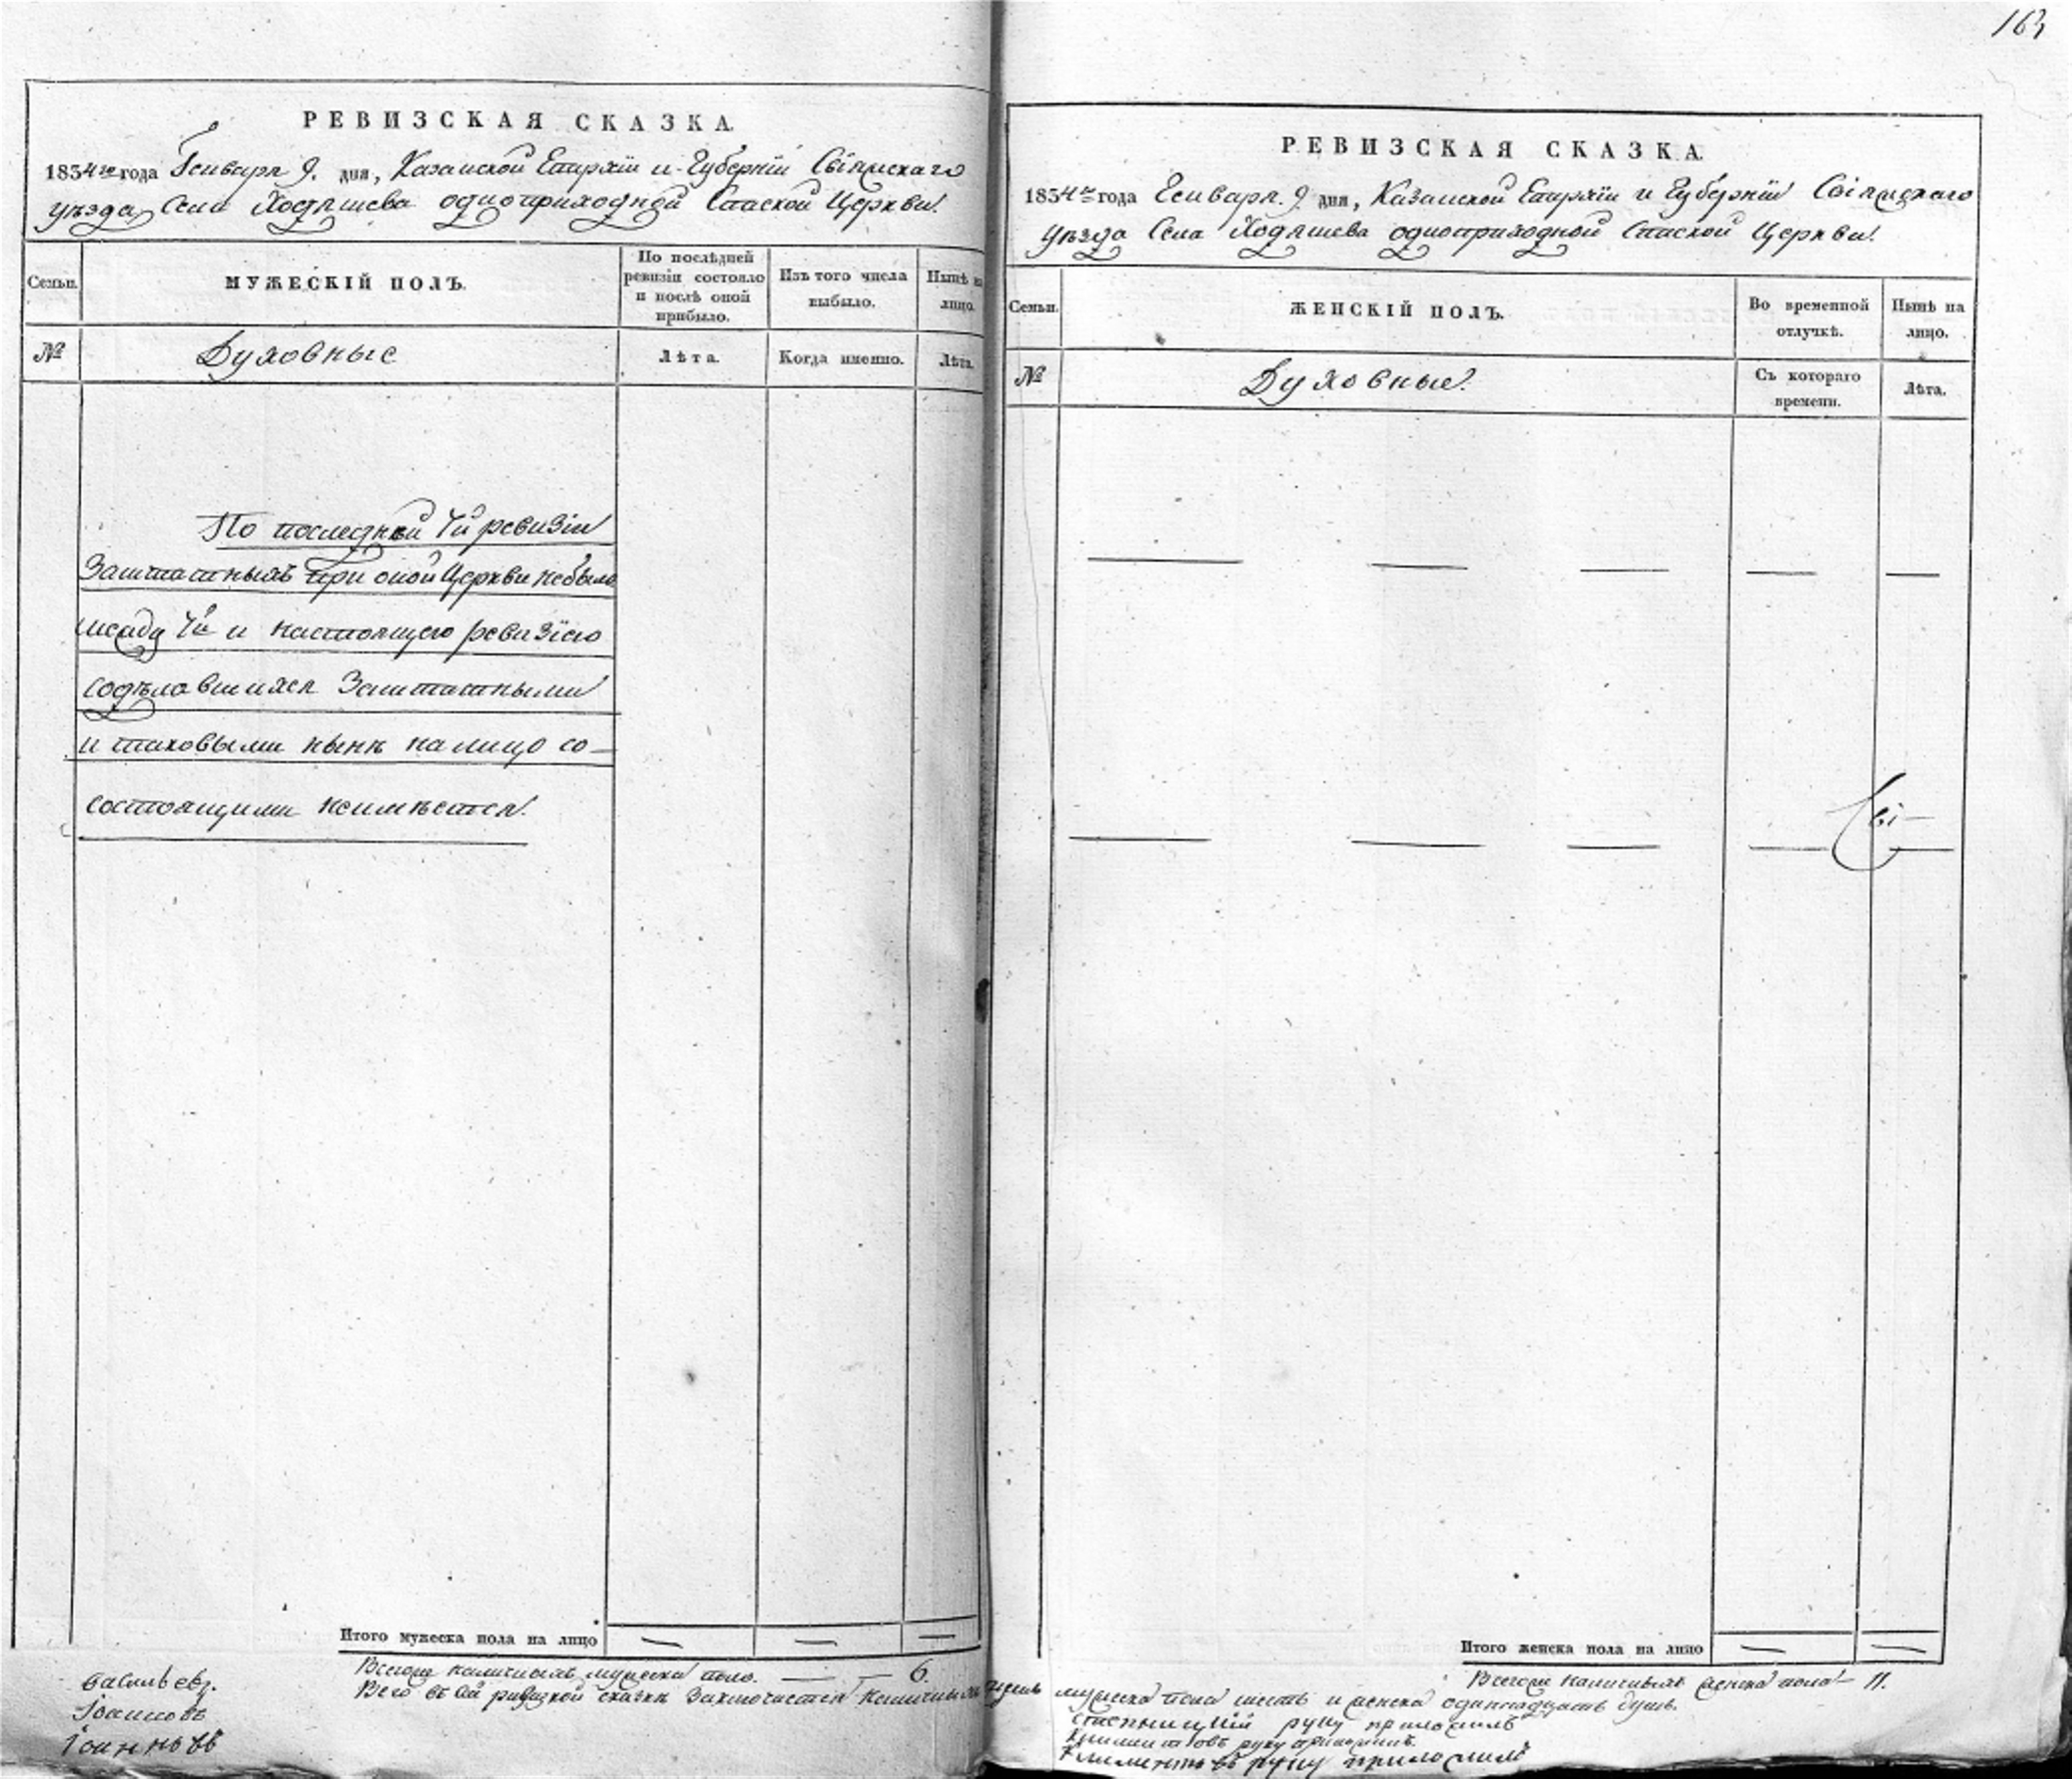 163
РЕВИЗСКАЯ СКАЗКА.
1834го года Генваря 9. дня, Казанской Епархіи и Губерніи Свіяжскаго
уѣзда Села Ходяшева одноприходной Спаской Церкви.
Семьи.
МУЖЕСКІЙ ПОЛЪ.
По послѣдней
ревизіи состояло
и послѣ оной
прибыло.
Изъ того числа
выбыло.
Нынѣ на
лицо.
№
Духовные
Лѣта.
Когда именно.
Лѣта.
По последней 7й ревизіи
Заштатныхъ при оной Церкви небыло
между 7й и настоящею ревизіею
содѣлавшихся Заштатными
и таковыми нынѣ налицо со-
состоящими неимѣется.
Итого мужеска пола на лицо
Всего наличныхъ мужеска пола. 6.
Всего въ сей ревизкой сказкѣ Заключается наличныхъ
Васильевъ.
Іоанновъ
Іоанновъ
РЕВИЗСКАЯ СКАЗКА.
1834го года Генваря. 9 дня, Казанской Епархіи и Губерніи Свіяжскаго
уѣзда Села Ходяшева одноприходной Спаской Церкви.
Семьи.
ЖЕНСКІЙ ПОЛЪ.
Во временной
отлучкѣ.
Нынѣ на
лицо.
№
Духовные.
Съ котораго
времени.
Лѣта.
Сві-
Итого женска пола на лицо
Всего наличныхъ женска пола 11.
мужеска пола шесть и женска одиннадцать душъ.
руку приложилъ
Климентовъ руку приложилъ.
Климентовъ руку приложилъ